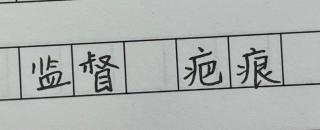 监督 疤痕